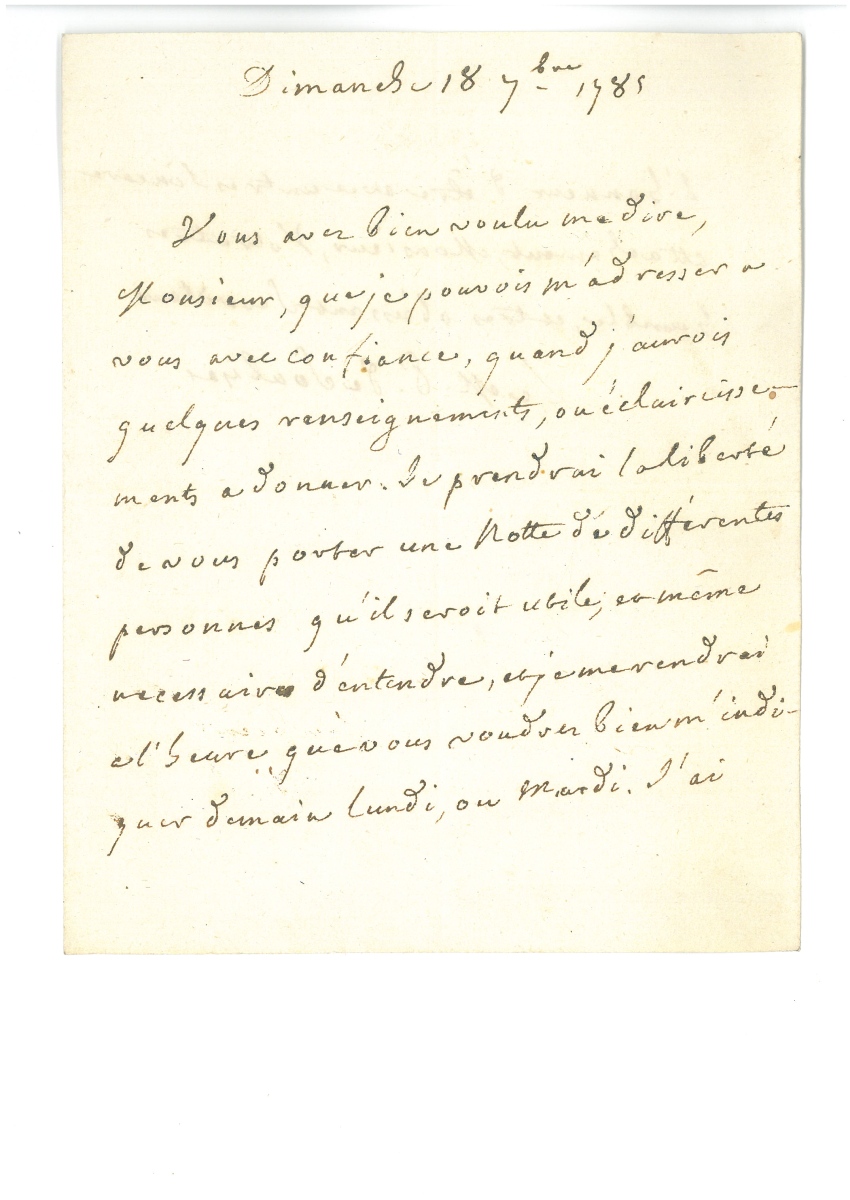 Dimanche 18 7bre 1785
Vous avez bien voulu me dire,
Monsieur, que je pouvois m'adresser a
vous avec confiance, quand j'aurois
quelques renseignements, ou éclaircisse-
ments a donner. Je prendrai la liberté
de vous porter une Notte de différentes
personnes qu'il seroit utile, et même
necessaire d'entendre, et je me rendrai
a l'heure que vous voudrez bien m'indi-
quer demain lundi, ou Mardi. J'ai